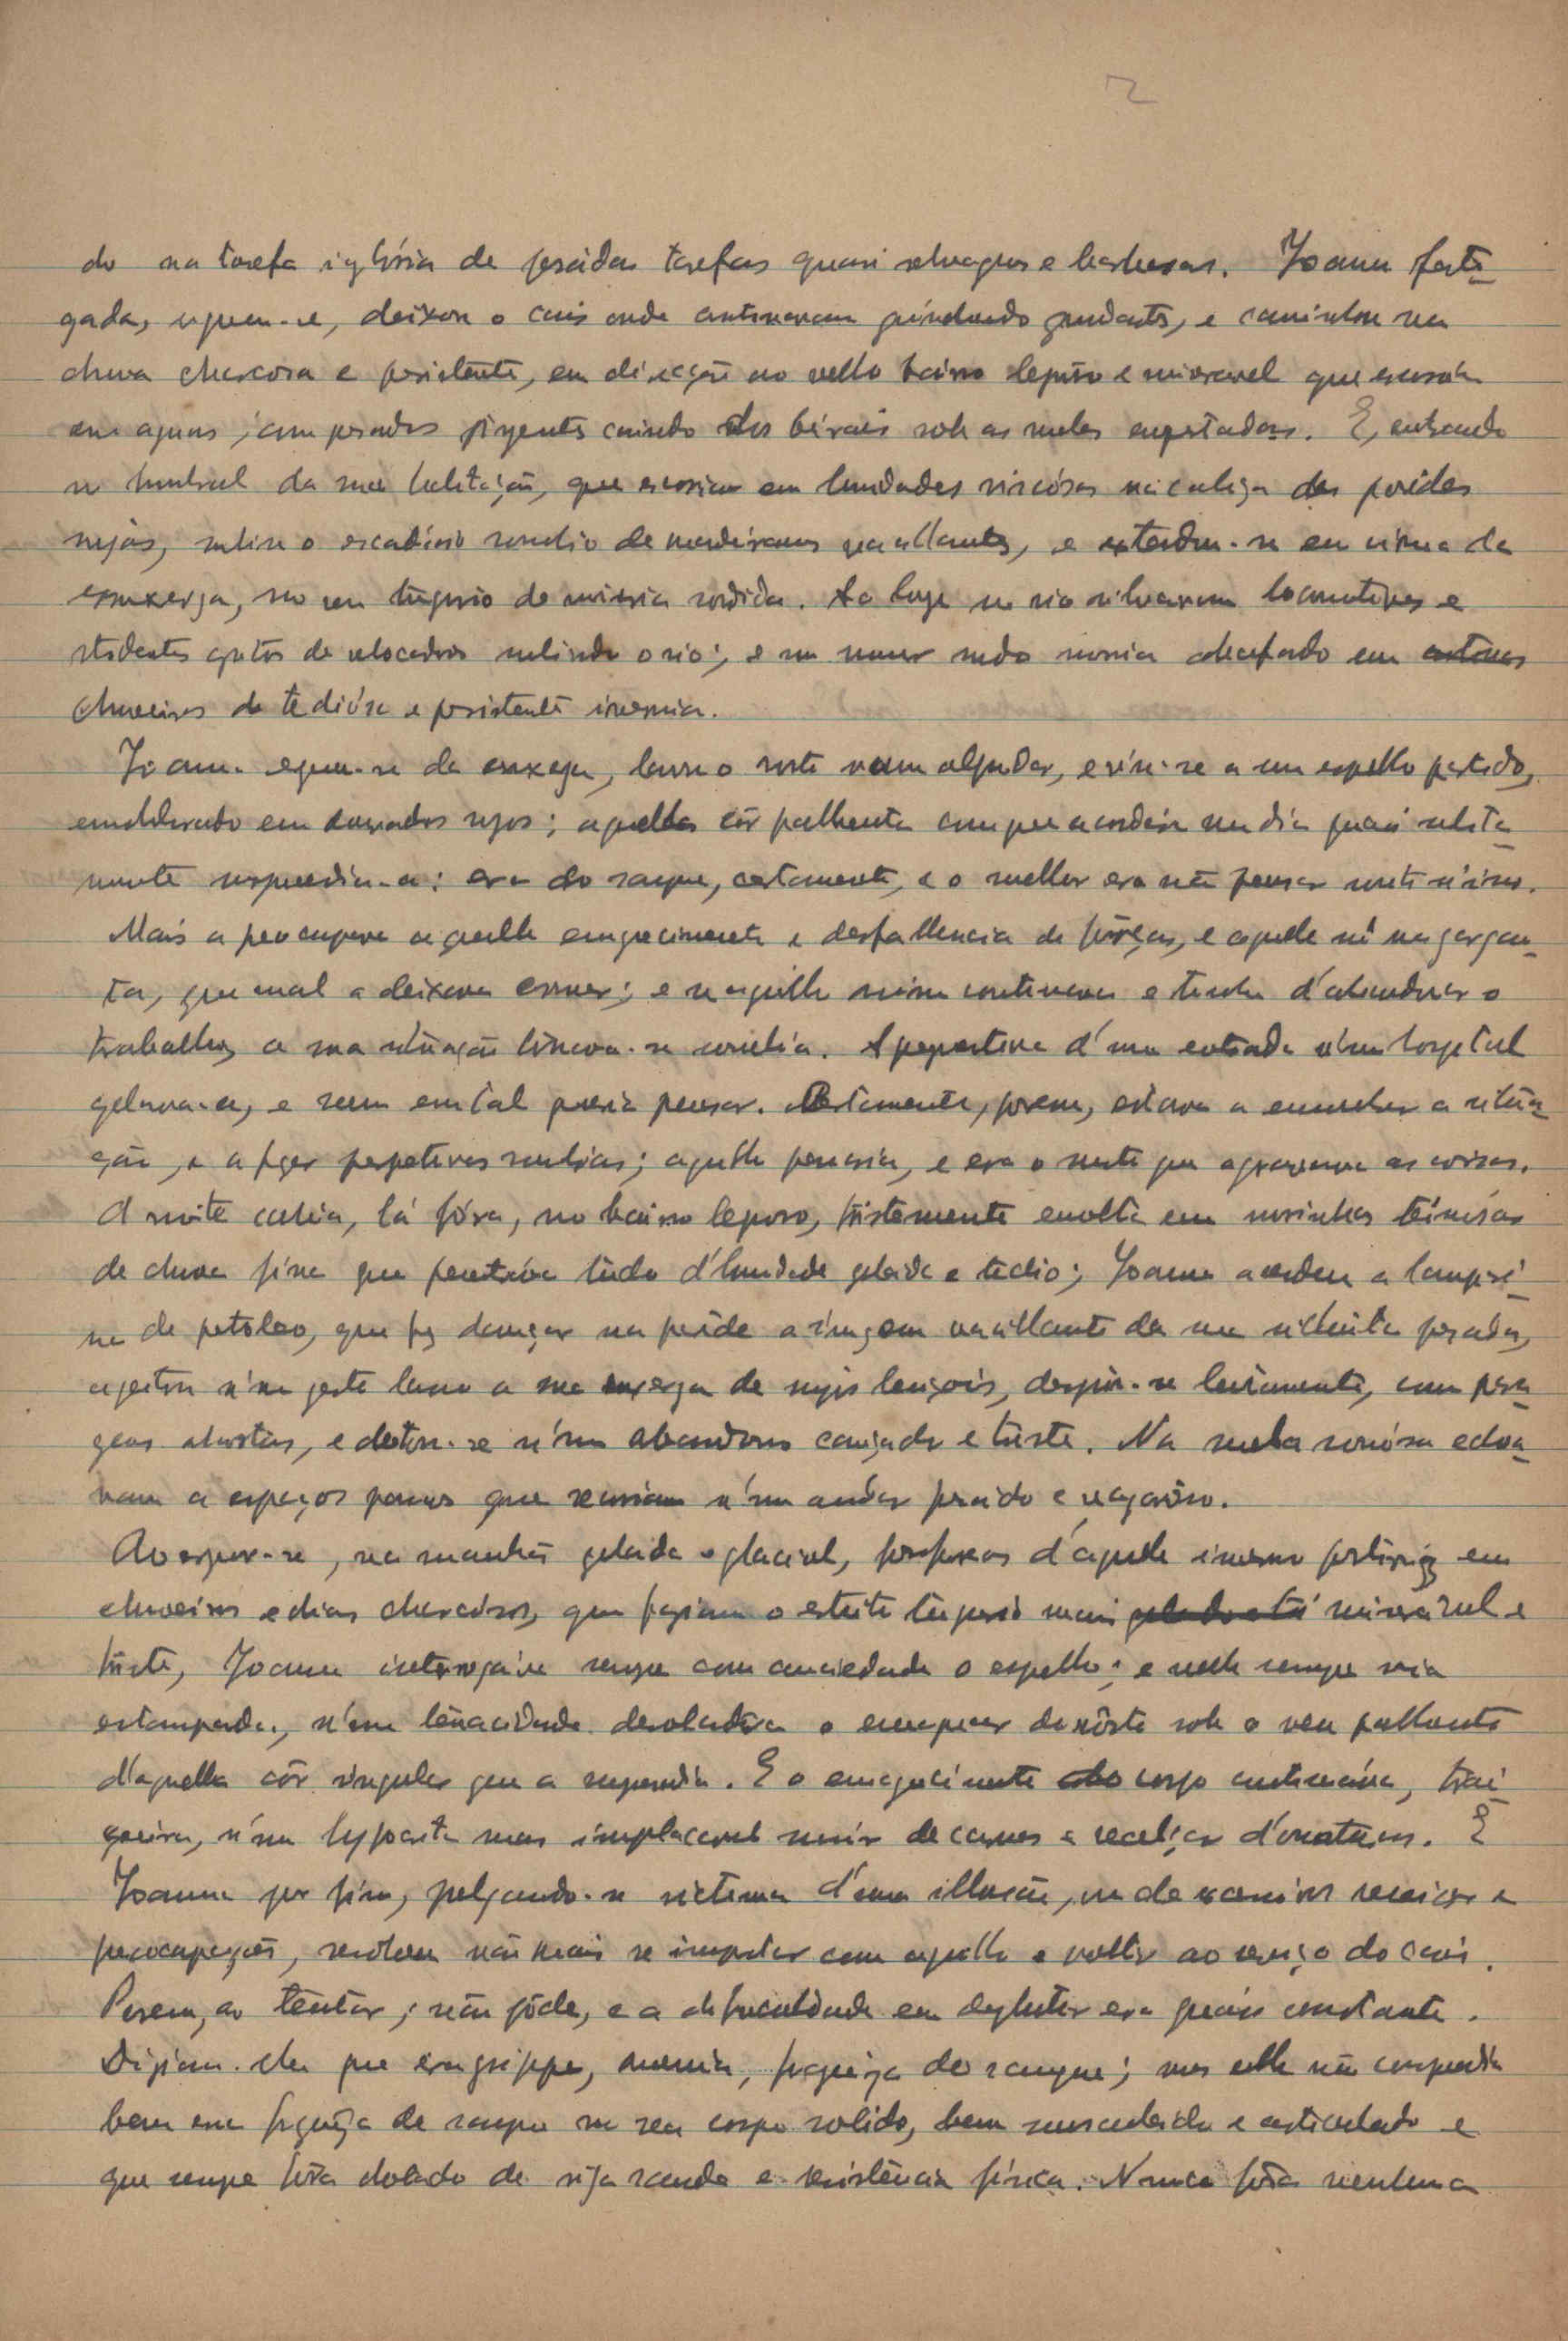 2
do na tarefa inglória de pesadas tarefas quasi selvagens e barbaras. Joanna fati-
gada, ergueu-se, deixou o cais onde continuavam guindastes, e caminhou na
chuva charcosa e persistente, em direcção ao velho bairro leproso e miseravel que escorria
em aguas, com pesados pingentes caindo dos beirais sob as ruelas empestadas. E, entrando
no humbral da sua habitação, que escorria em humidades viscósas na caliça das parêdes
sujas, subiu o escadório sombrio de madeiramens vacillantes, e estendeu-se em cima da
enxerga, no seu tugurio de miseria sordida. Ao longe no rio silvavam locomotivas e
stridentes apitos de rebocadores subindo o rio; e um rumor surdo morria abafado em
chuveiros de tediósa e persistente invernia.
Joanna ergueu-se da enxerga, lavou o rosto num alguidar, e viu-se a um espelho partido,
emoldurado em dourados sujos; aquella côr palhenta com que acordára um dia quasi subita-
mente surpreendia-a: era do sangue, certamente, e o melhor era não pensar muito n'isso.
Mais a preocupava aquelle emagrecimento e desfallencia de fôrças, e aquelle nó na gargan-
ta, que mal a deixava comer; e se aquillo assim continuava e tinha d'abandonar o
trabalho, a sua situação tornava-se sombria. A perspectiva d'uma entrada n'um hospital
gelava-a, e nem em tal queria pensar. Certamente, porem, estava a ennubelar a situa-
ção, e a fazer perspetivas sombrias; aquillo passaria, e era o susto que agravava as coisas.
A noite cahia, lá fóra, no bairro leproso, tristemente envolta em morrinhas teimósas
de chuva fina que penetráva tudo d'humidade gelada e tedio; Joanna acendeu a lampari-
na de petroleo, que fez dançar na parêde a imagem vacillante da sua silhueta pesada,
ageitou n'um gesto lasso a sua enxerga de sujos lençois, despiu-se lentamente, com para-
gens absortas, e deitou-se n'um abandono cançado e triste. Na ruela sonóra echoa-
vam a espaços passos que se sumiam n'um andar pesado e vagaroso.
Ao erguer-se, na manhã gelada e glacial, d'aquele inverno portuguez em
chuveiros e dias charcósos, que faziam o estreito tugurio mais miseravel e
triste, Joanna interrogáva sempre com anciedade o espelho; e nelle sempre via
estampada, n'uma tenacidade desoladora o emagrecer do rôsto sob o veu palhento
d'aquella côr singular que a surpreendia. E o emagrecimento do corpo continuáva, trai-
çoeiro, n'um hypocrita mas implacavel sumir de carnes e realçar d'ossaturas. E
Joanna por fim, julgando-se victima d'uma illusão, ou de receios e
preocupações, resolveu não mais se importar com aquillo e voltar ao serviço do cais.
Porem, ao tentar, não pôde, e a dificuldade em deglutir era quasi constante.
Diziam-lhe que era grippe, anemia, fraqueza do sangue; mas ella não compreendia
bem essa fraqueza de sangue no seu corpo solido, bem musculado e articulado e
que sempre fôra dotado de rija saude e resistência física. Nunca fôra nenhuma